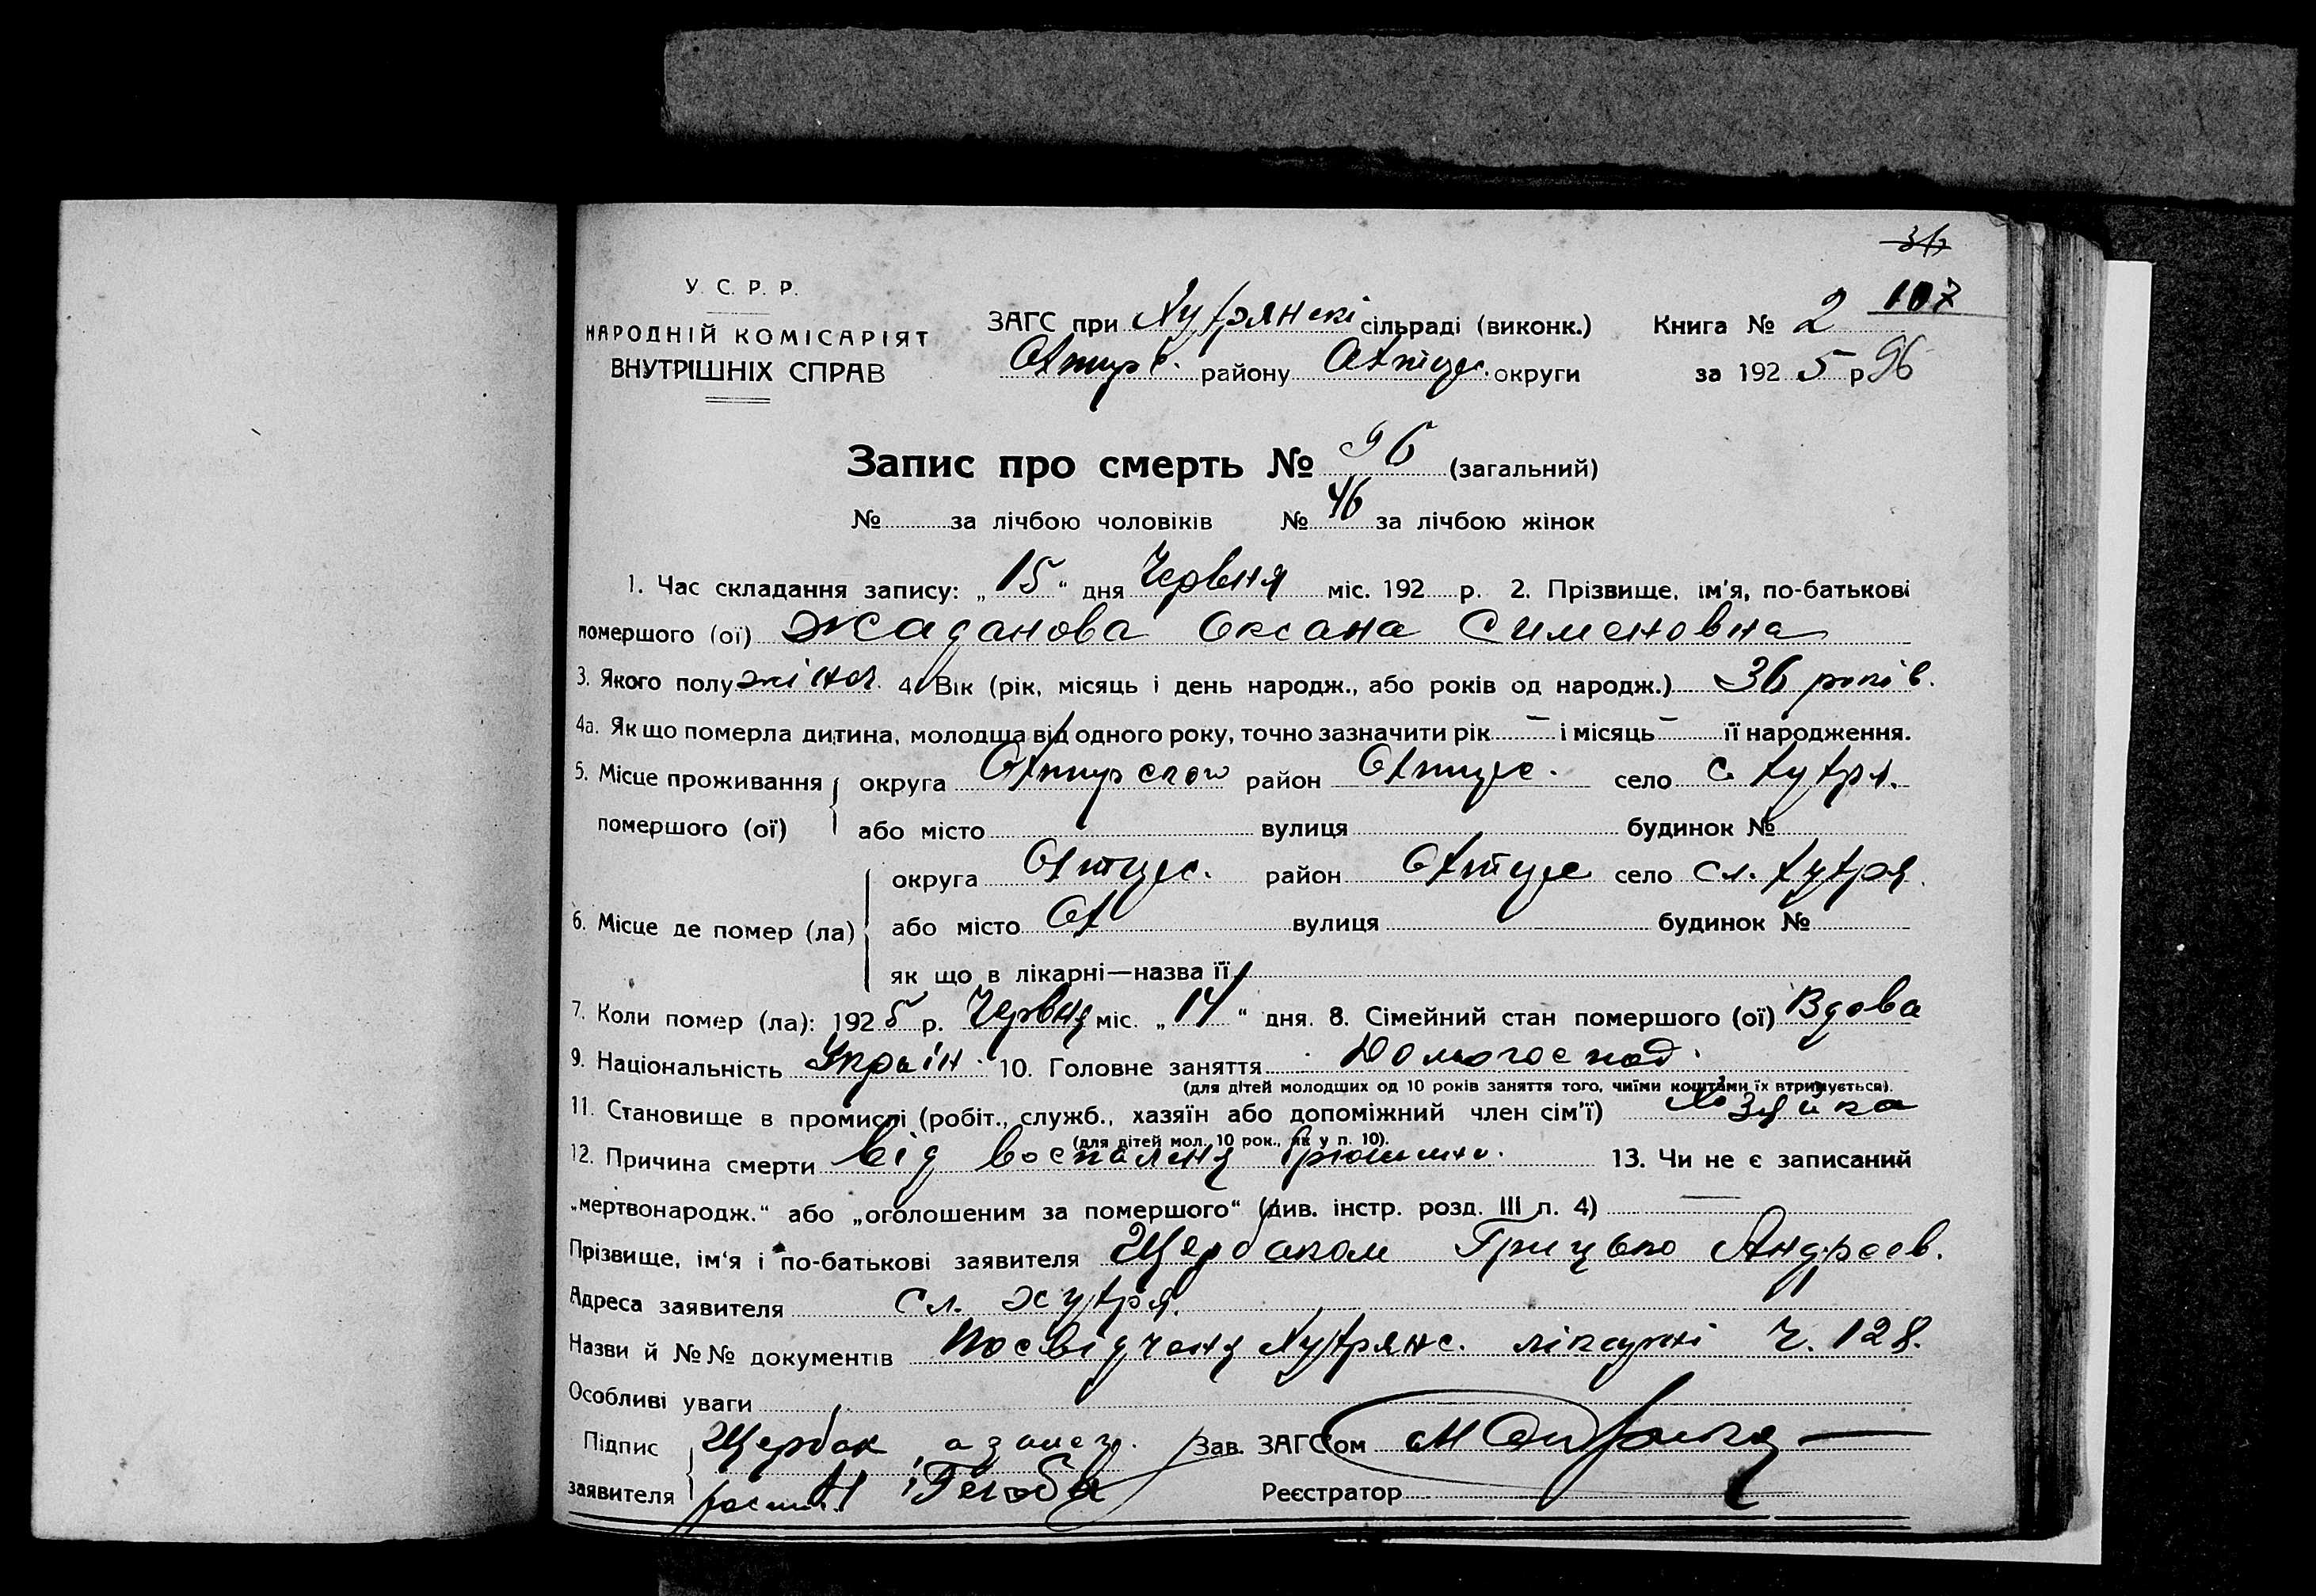 107
У. С. Р. Р.
НАРОДНІЙ КОМІСАРІЯТ
ВНУТРІШНІХ СПРАВ
ЗАГС при сільраді (виконк.) Книга № 2
району округи за 192 5 р 96
Запис про смерть № 96 (загальний)
№ за лічбою чоловіків № 46 за лічбою жінок
1. Час складання запису: „ 15 “ дня Червня міс. 192 р. 2. Прізвище, ім'я, по-батькові
помершого (ої) Жаданова Оксана Сименовна
3. Якого полу жіноч. 4. Вік (рік, місяць і день народж., або років од народж.) 36 років.
4а. Як що померла дитина, молодща від одного року, точно зазначити рік – і місяць – її народження.
5. Місце проживання округа район село
помершого (ої) або місто вулиця будинок №
округа район село сл.
6. Місце де помер (ла) або місто Ох вулиця будинок №
як що в лікарні—назва її
7. Коли помер (ла): 192 5 р. Червня міс. „ 14 “ дня. 8. Сімейний стан помершого (ої) Вдова
9. Національність Україн. 10. Головне заняття Домогоспод.
(для дітей молодших од 10 років заняття того, чиїми коштами їх втримується).
11. Становище в промислі (робіт., служб., хазяїн або допоміжний член сім'ї)
(для дітей мол. 10 рок., як у п. 10).
12. Причина смерти від воспаленя брюшини. 13. Чи не є записаний
„мертвонародж.“ або „оголошеним за помершого“ (див. інстр. розд. III п. 4) —
Прізвище, ім'я і по-батькові заявителя Щербаком Грицько Андреев.
Адреса заявителя сл.
Назви й №№ документів Посвідченя лікарні ч. 128.
Особливі уваги
Підпис Щербак Зав. ЗАГСом
заявителя Реєстратор